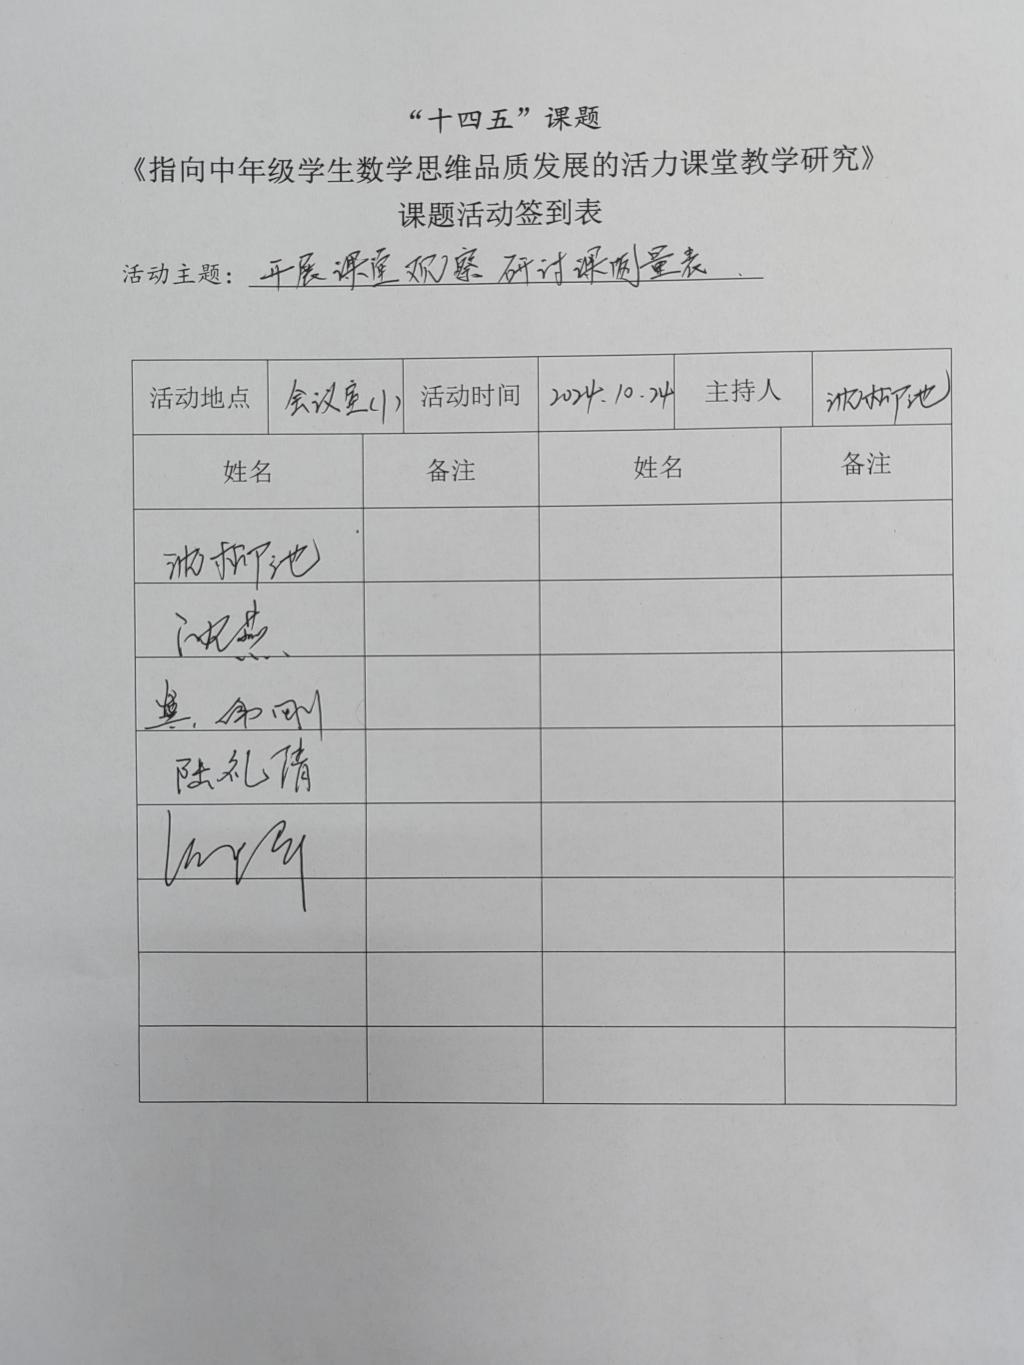 “十四五”课题
《指向中年级学生数学思维品质发展的活力课堂教学研究》
课题活动签到表
活动主题：开展课堂观察 研讨课测量表
活动地点 会议室(1) 活动时间 2024.10.24 主持人 柳池
姓名 备注 姓名 备注
柳池
沈燕
陆礼倩